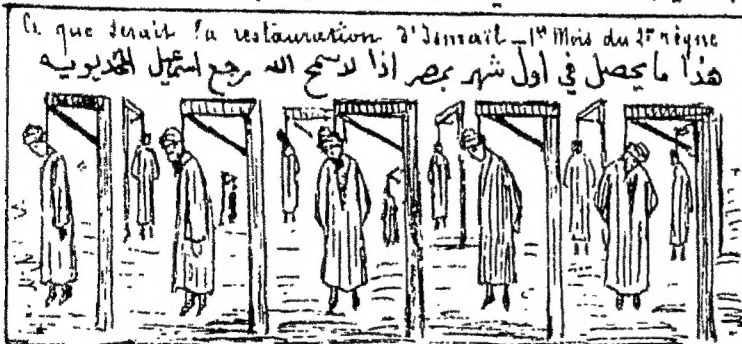 Ce que serait la restauration d'Ismaïl _ 1er Mois du 2e règne
هذا ما يحصل في اول شهر بمصر اذا لا سمح الله رجع اسمعيل الخديويه